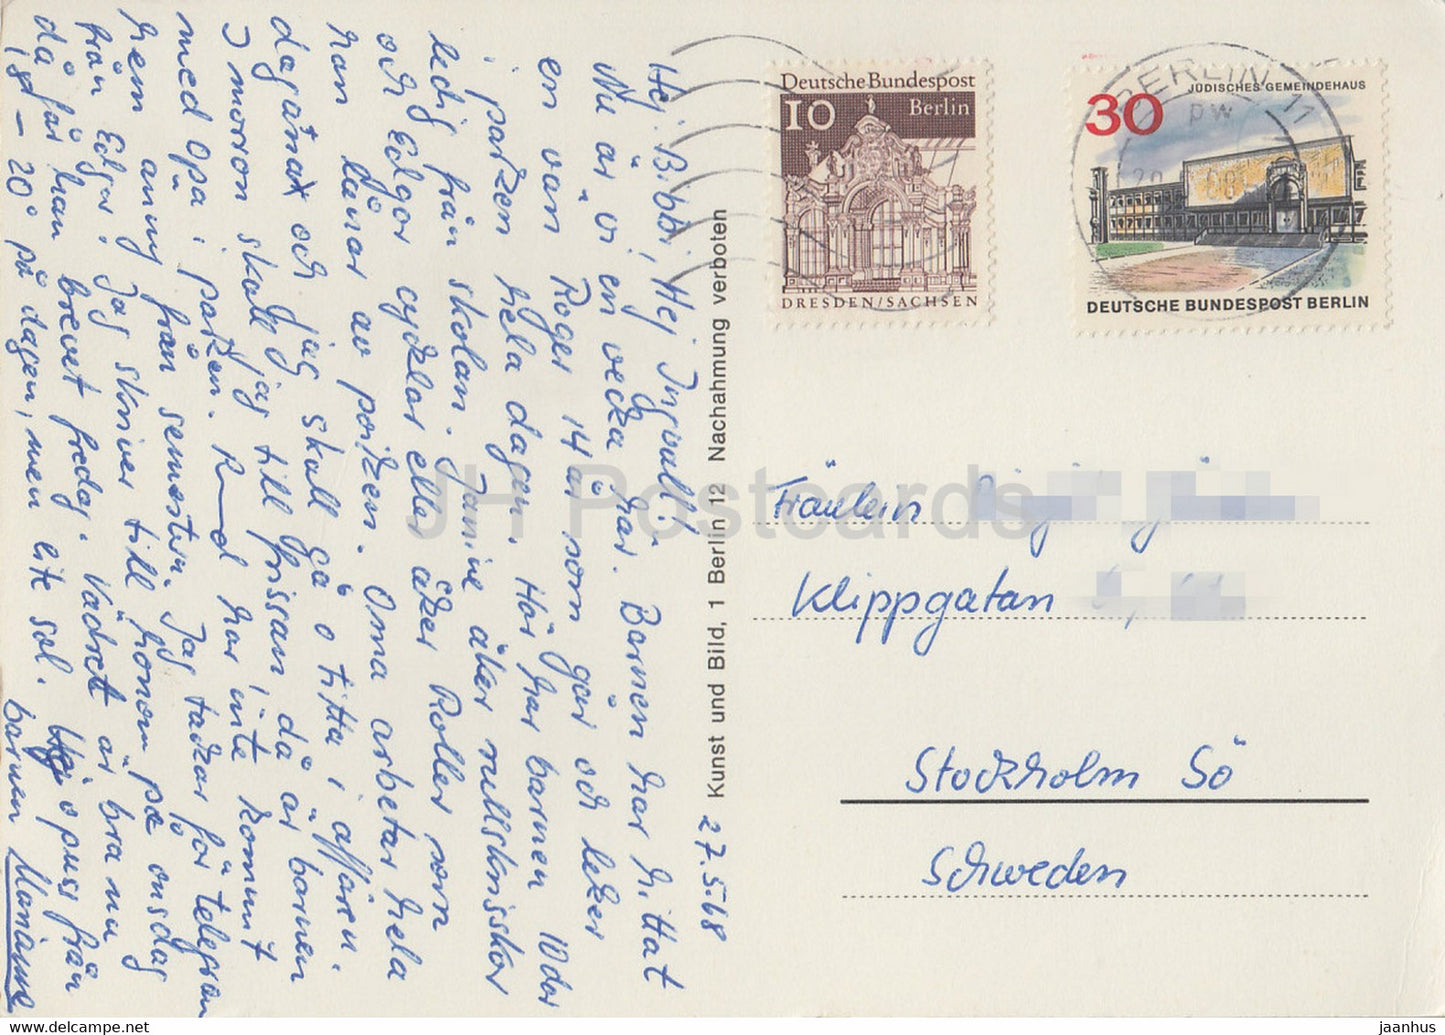 27.5.68
Hej Bibbi, Hej Ingvall!
Nu är vi en vecka här. Barnen har hittat
en vän Roger 14 år som går och leker
i parken hela dagen. Här har barnen 10 dar
ledig från skolan. Janine åker rullskriskor
och Edgar cyklar eller åker Roller som
han lånar av pojken. Oma arbetar hela
dagarna och jag skall gå o titta i affären.
I morron skall jag till frissan, då är barnen
med Opa i parken. har inte kommit
hem ännu från semestern. Jag tackar för telegram
från Edgar. Jag skriver till honom på onsdag
då får han brevet fredag. Vädret är bra nu
ist - 20° på dagen, men lite sol. Hej o puss från
barnen Marianne
Kunst und Bild, 1 Berlin 12 Nachahmung verboten
Deutsche Bundespost
10 Berlin
DRESDEN/SACHSEN
JÜDISCHES GEMEINDEHAUS
30
DEUTSCHE BUNDESPOST BERLIN
BERLIN 11
pw
Fräulein
Klippgatan
Stockholm Sö
Schweden
JH Postcards
www.delcampe.net
jaanhus